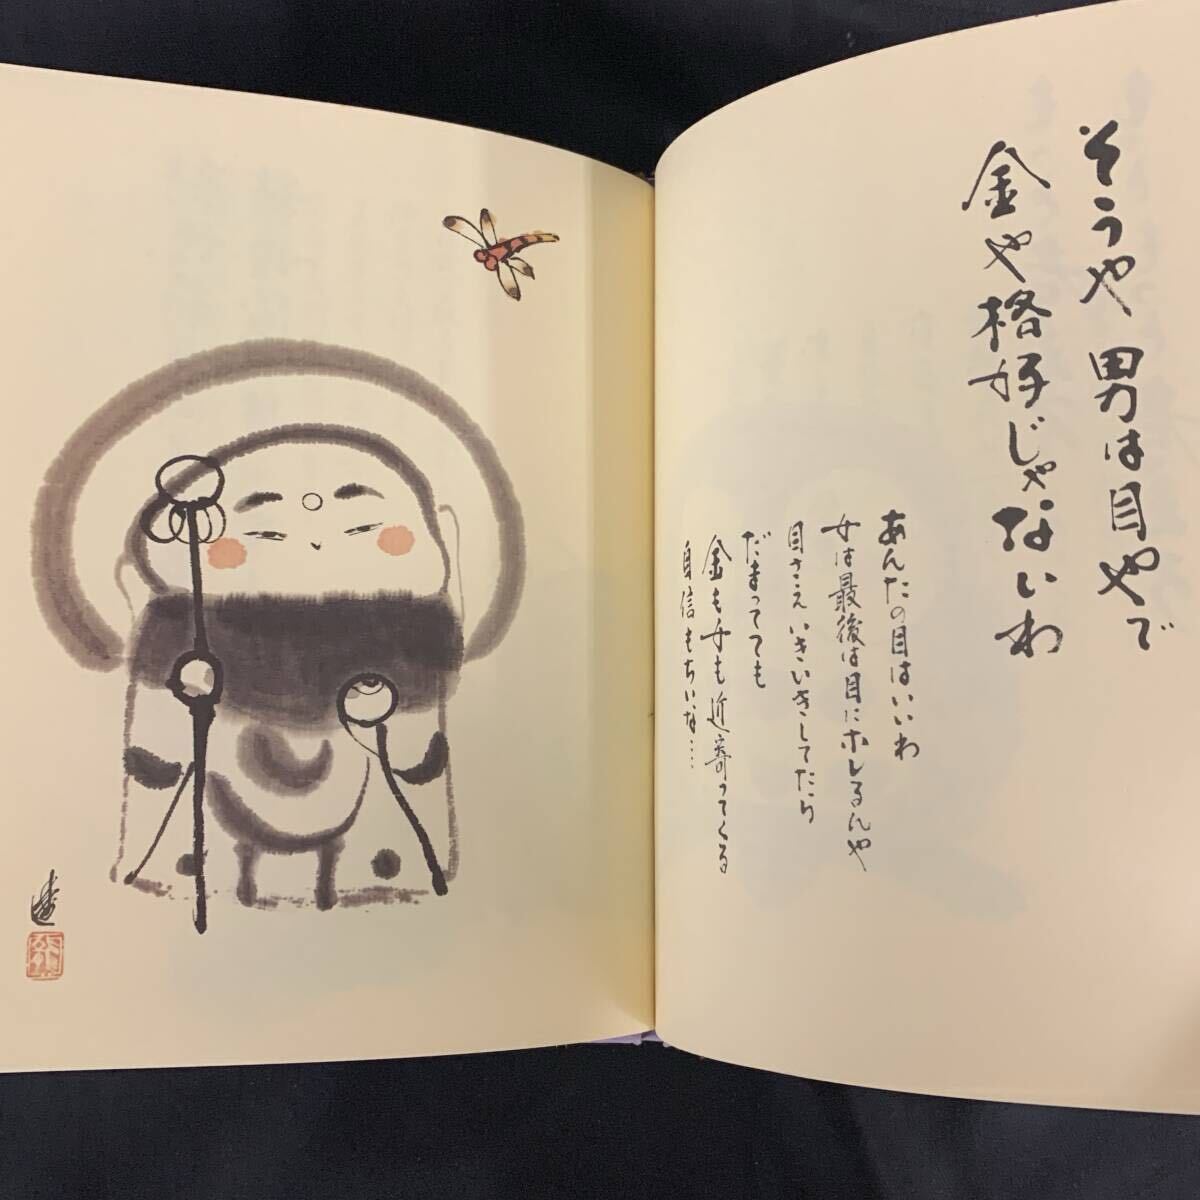 そうや 男は目やで
金や格好じゃないわ
あんたの目はいいわ
女は最後は目にホレるんや
目さえいきいきしてたら
だまってても
金も女も近寄ってくる
自信もちいな…